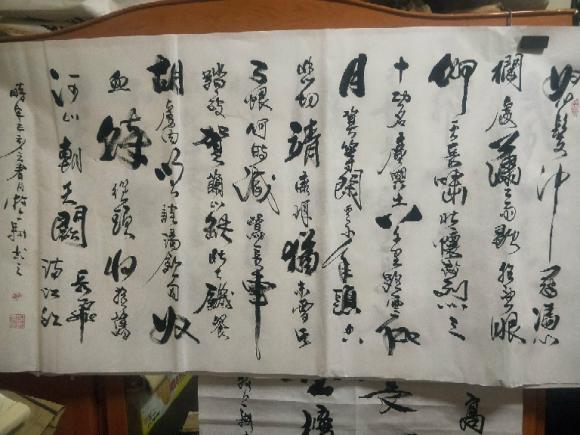 怒髮冲冠憑
欄處瀟瀟雨歇抬望眼
仰天長嘯壯懷激烈三
十功名塵與土八千里路雲和
月莫等閑白了少年頭空
悲切靖康恥猶未雪臣
子恨何時滅駕長車
踏破賀蘭山缺壯志饑餐
胡虜肉笑談渴飲匈奴
血待從頭收拾舊
河山朝天闕 岳飛
滿江紅
高